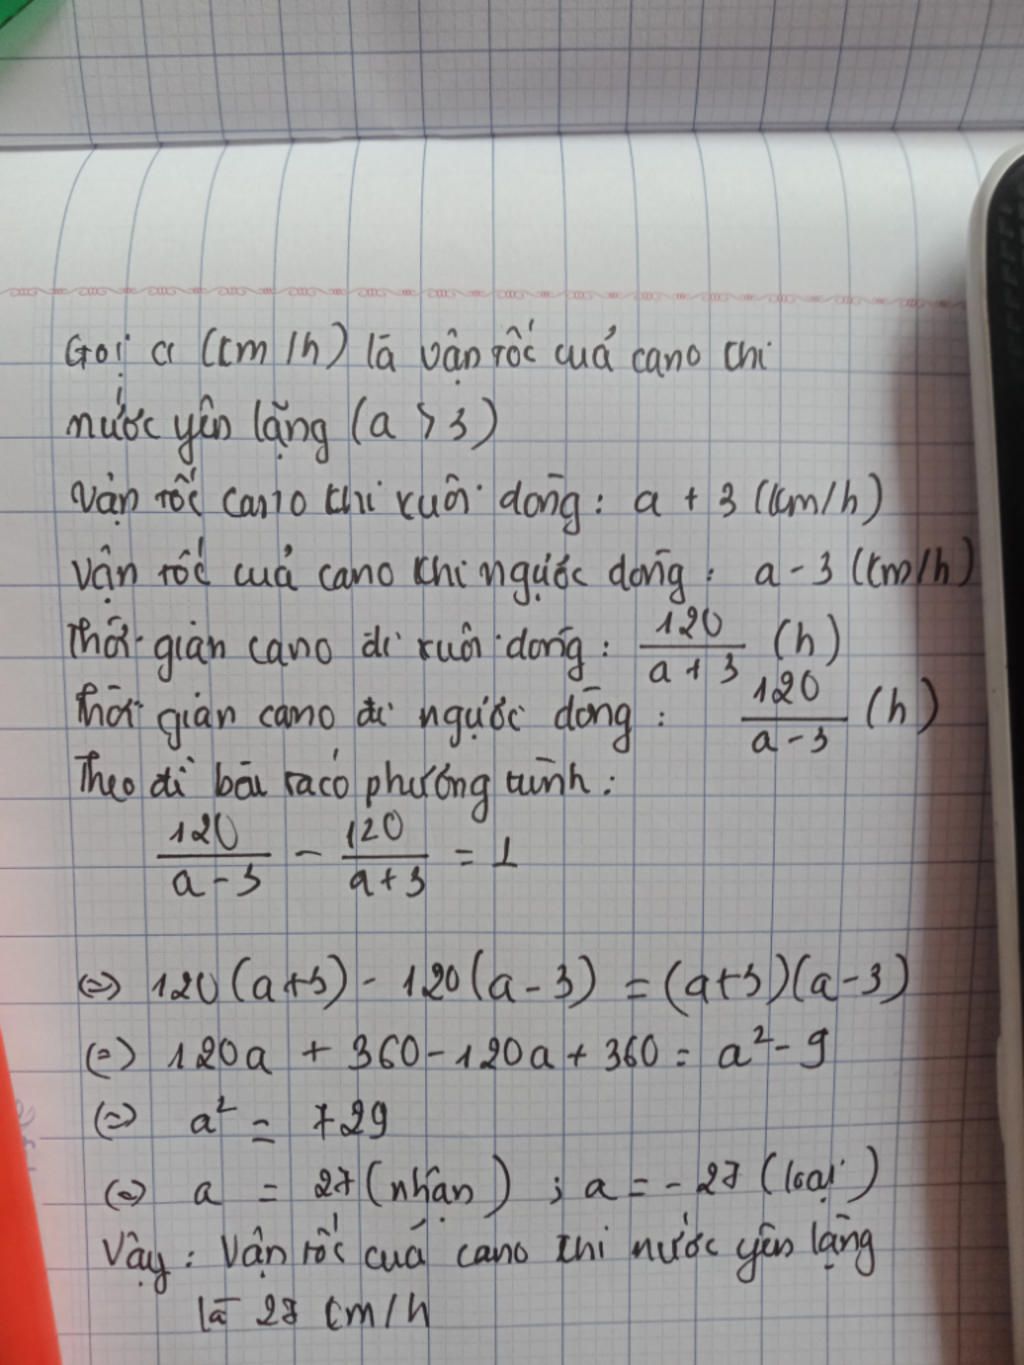 Gọi a (km/h) là vận tốc cuả cano khi
nước yên lặng (a > 3)
Vận tốc cano khi xuôi dòng: a + 3 (km/h)
Vận tốc cuả cano khi ngược dòng: a - 3 (km/h)
Thời gian cano đi xuôi dòng: 120/(a + 3) (h)
Thời gian cano đi ngược dòng: 120/(a - 3) (h)
Theo đề bài ta có phương trình:
120/(a - 3) - 120/(a + 3) = 1
(=) 120(a+3) - 120(a - 3) = (a+3)(a-3)
(=) 120a + 360 - 120a + 360 = a² - 9
(=) a² = 729
(=) a = 27 (nhận) ; a = - 27 (loại)
Vậy: Vận tốc cuả cano khi nước yên lặng
là 27 km/h